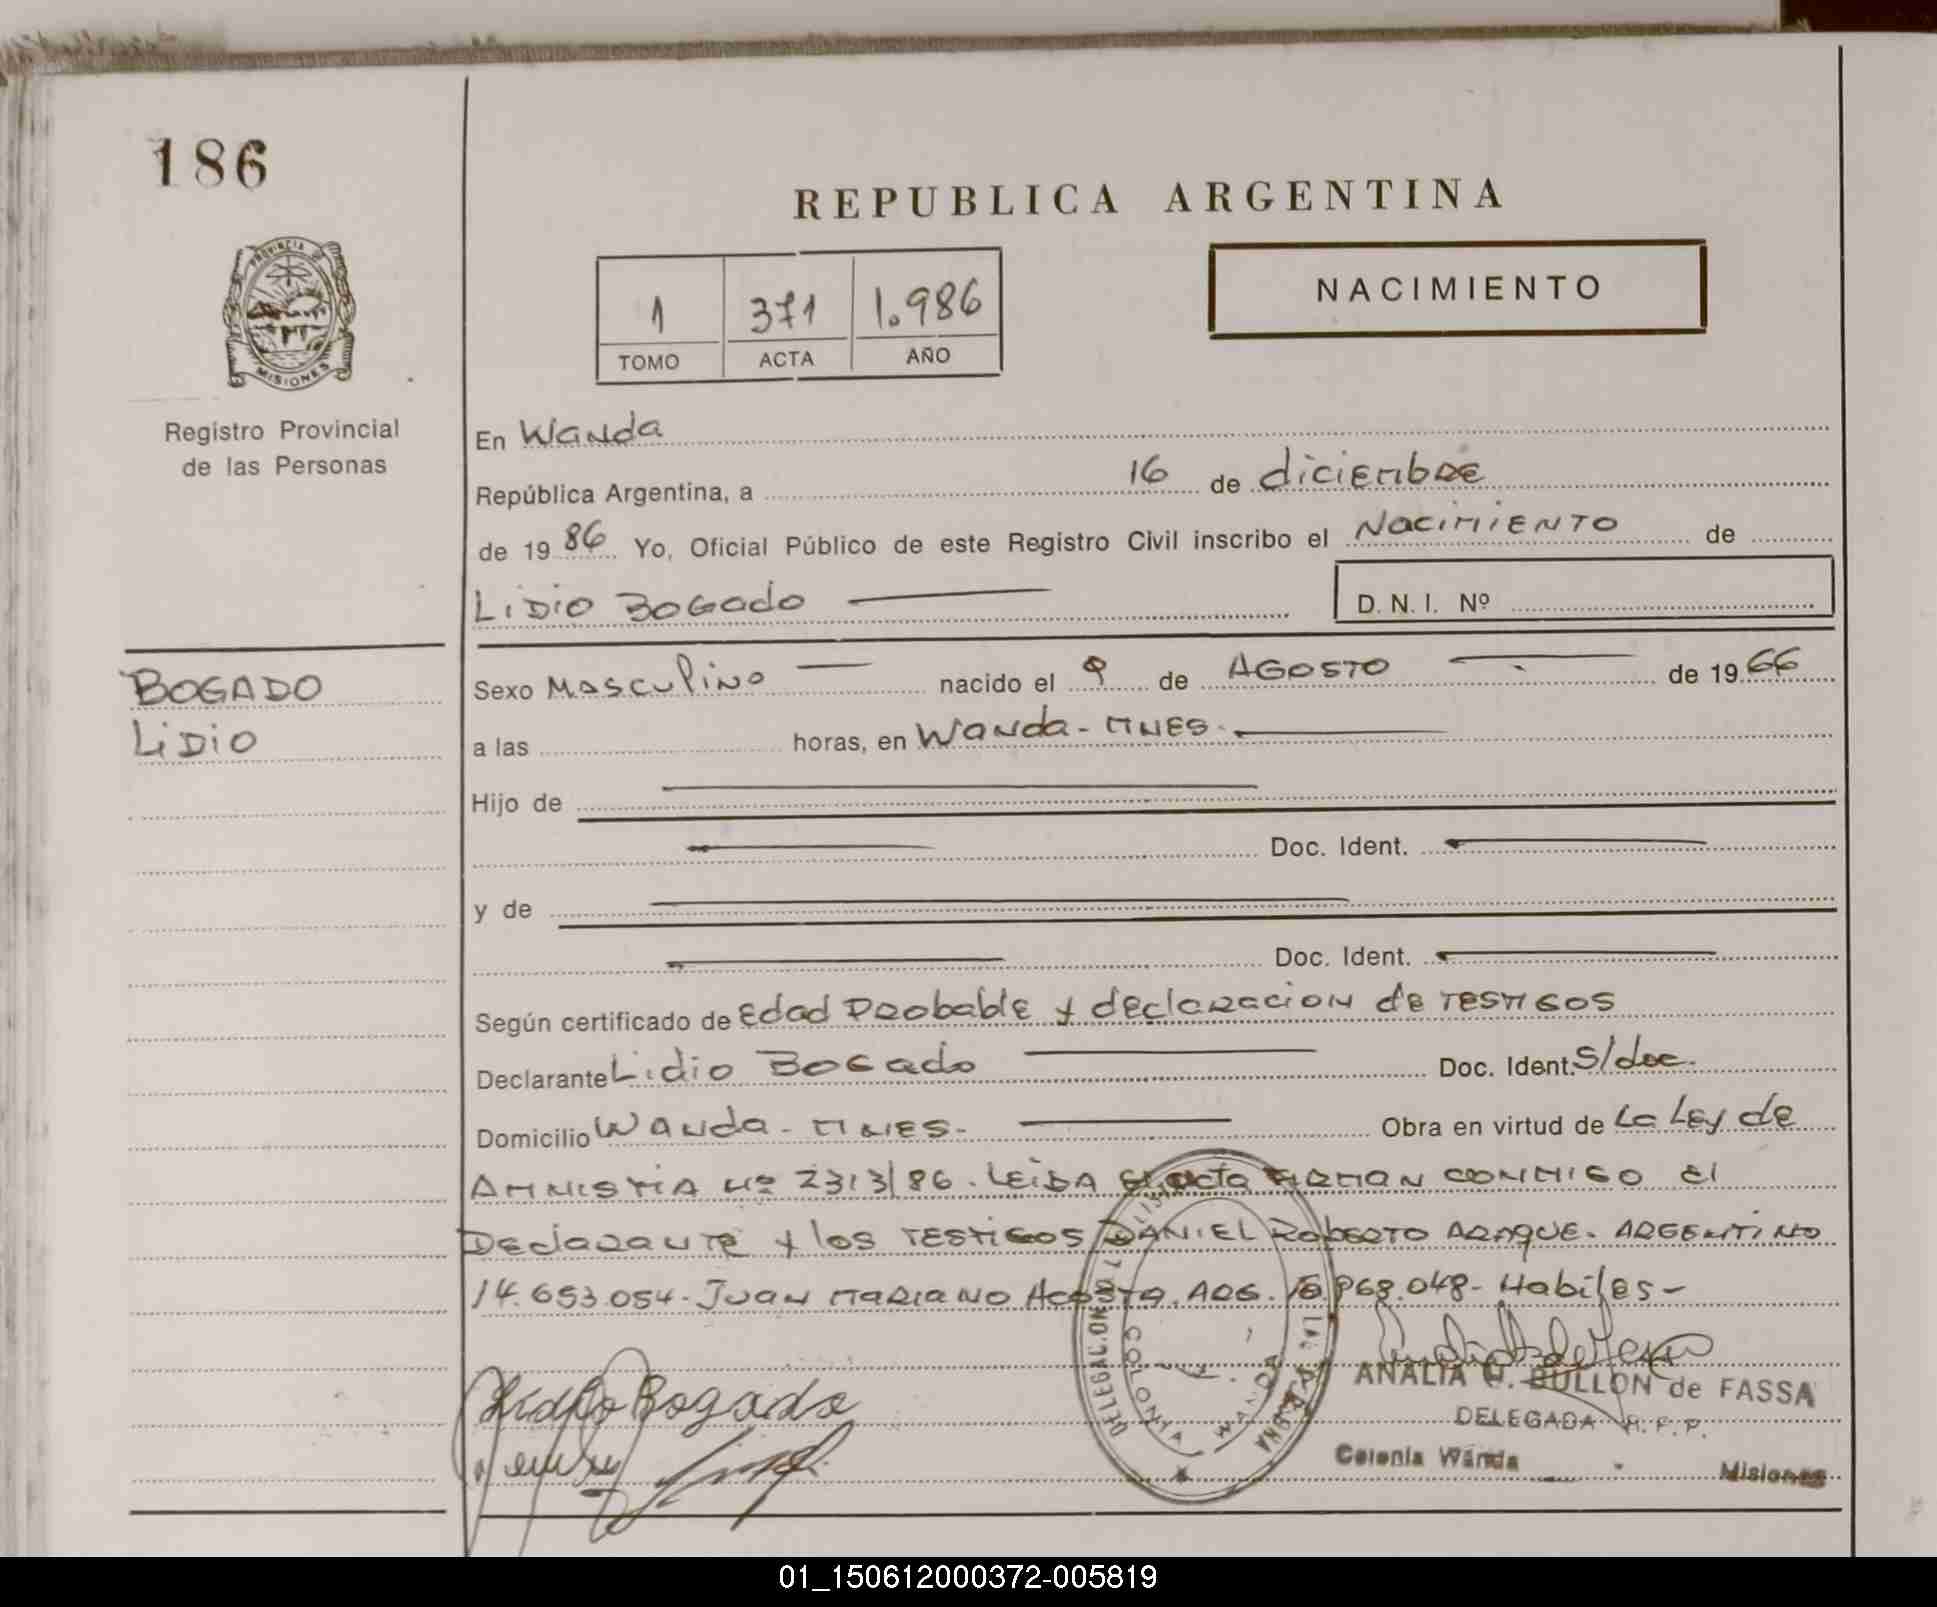 186
REPUBLICA ARGENTINA
PROVINCIA
MISIONES
1 371 1.986
TOMO ACTA AÑO
NACIMIENTO
Registro Provincial
de las Personas
En Wanda
República Argentina, a 16 de diciembre
de 19 86 Yo, Oficial Público de este Registro Civil inscribo el Nacimiento de
Lidio Bogado
D. N. I. Nº
BOGADO
Lidio
Sexo Masculino nacido el 9 de Agosto de 19 66
a las horas, en Wanda - MNES.
Hijo de
Doc. Ident.
y de
Doc. Ident.
Según certificado de edad probable y declaracion de testigos
Declarante Lidio Bogado Doc. Ident. S/doc.
Domicilio Wanda - MNES. Obra en virtud de la Ley de
Amnistia Nº 2313/86. Leida el acta firman conmigo el
Declarante y los testigos Daniel Roberto Araque. Argentino
14.653.054. Juan Mariano Acosta. Arg. 968.048 - Habiles -
Lidio Bogado
DELEGACION COLONIA WANDA
ANALIA BULLON de FASSA
DELEGADA R. P. P.
Colonia Wanda Misiones
01_150612000372-005819